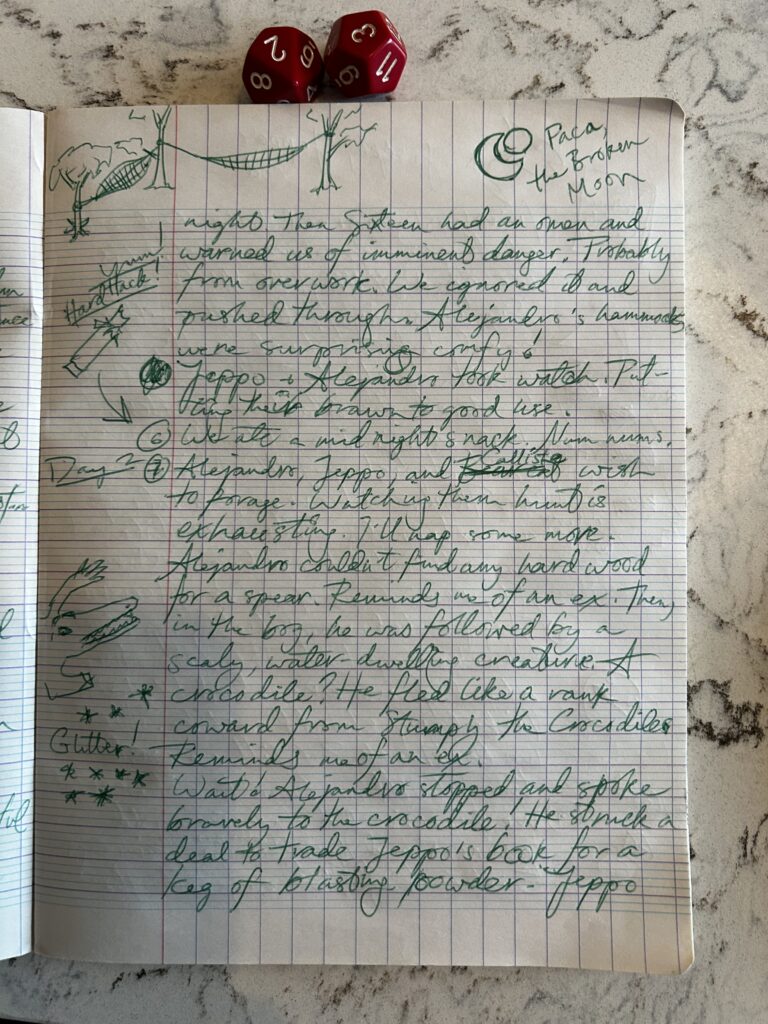 2
8
9
3
11
9
Paca,
the Broken
Moon
night. Then Sixteen had an omen and
warned us of imminent danger. Probably
from overwork. We ignored it and
pushed through. Alejandro's hammocks
were surprising comfy!
Yum!
HardHack!
Jeppo + Alejandro took watch. Put-
ting their brawn to good use.
6 We ate a midnight snack. Num nums.
Day 2 7 Alejandro, Jeppo, and Callisto wish
to forage. Watching them hunt is
exhausting. I'll nap some more.
Alejandro couldn't find any hard wood
for a spear. Reminds me of an ex. Then,
in the bog, he was followed by a
scaly, water-dwelling creature. A
crocodile? He fled like a rank
coward from Stumpy the Crocodile.
Glitter!
Reminds me of an ex.
Wait! Alejandro stopped and spoke
bravely to the crocodile! He struck a
deal to trade Jeppo's book for a
keg of blasting powder. Jeppo